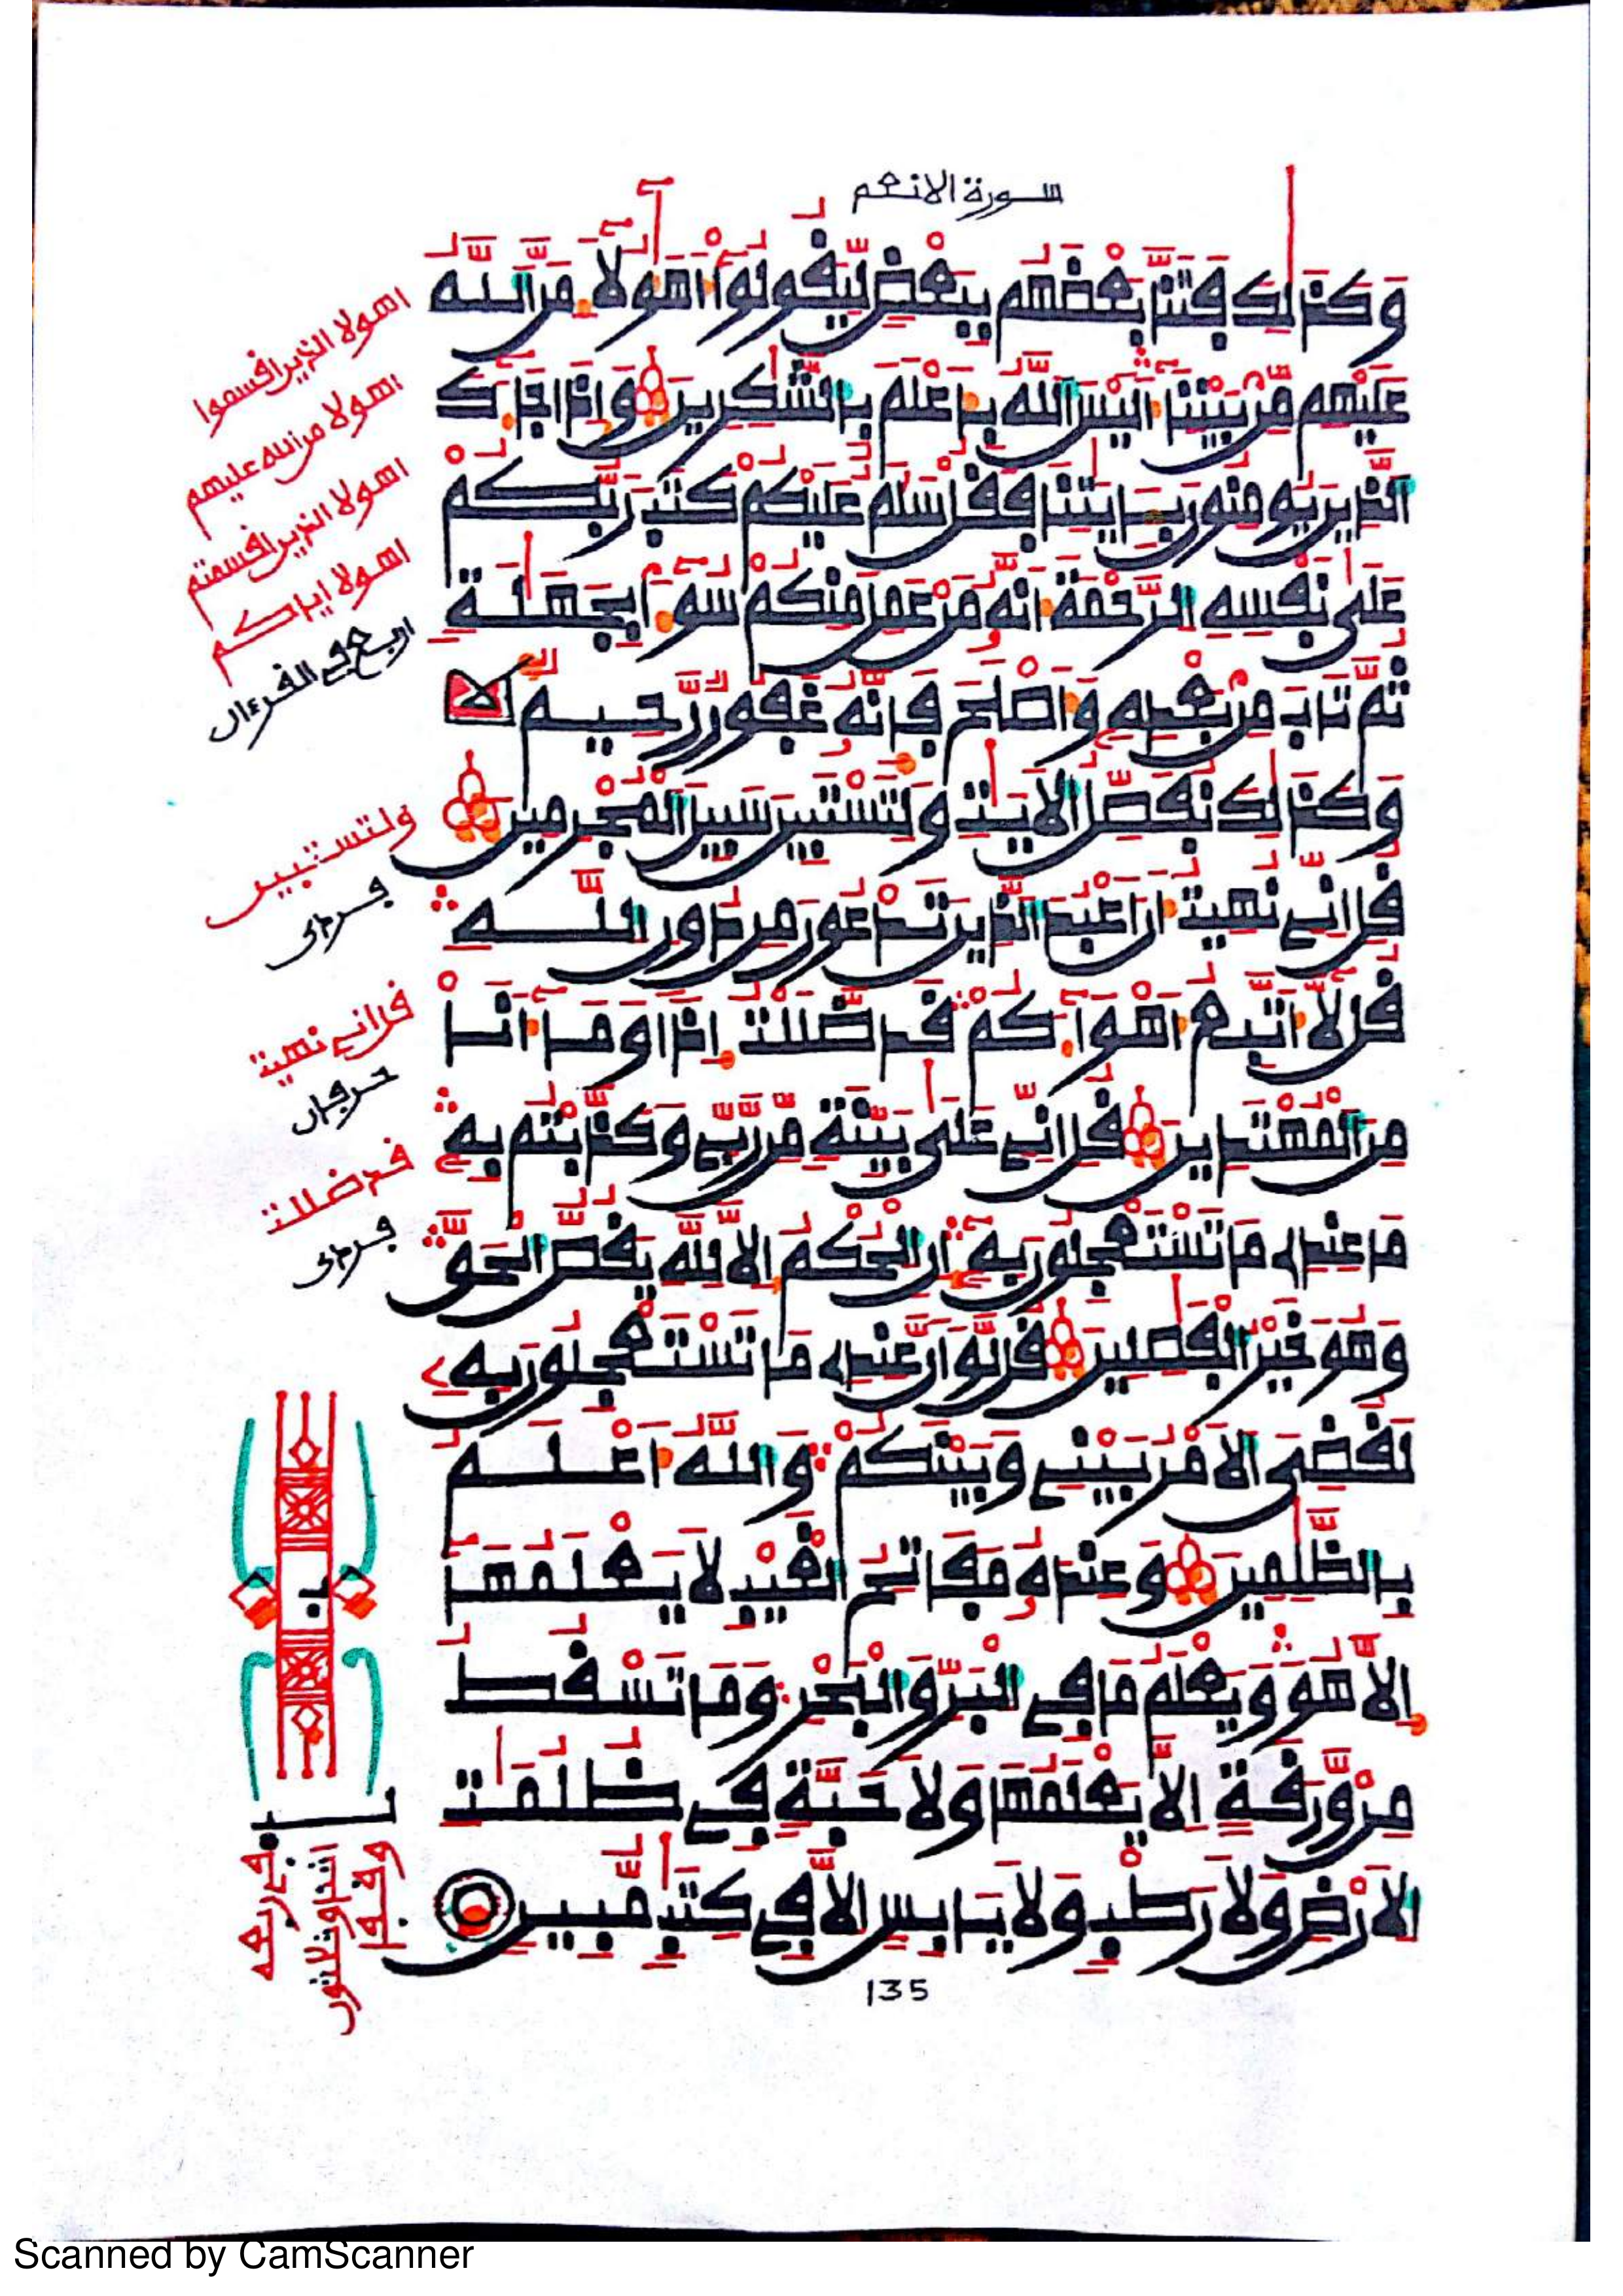 سورة الانعم
وَكَذَٰلِكَ فَتَنَّا بَعْضَهُم بِبَعْضٍ لِّيَقُولُوٓا۟ أَهَٰٓؤُلَآءِ مَنَّ ٱللَّهُ
عَلَيْهِم مِّنۢ بَيْنِنَآ أَلَيْسَ ٱللَّهُ بِأَعْلَمَ بِٱلشَّٰكِرِينَ وَإِذَا جَآءَكَ
ٱلَّذِينَ يُومِنُونَ بِـَٔايَٰتِنَا فَقُلْ سَلَٰمٌ عَلَيْكُمْ كَتَبَ رَبُّكُمْ
عَلَىٰ نَفْسِهِ ٱلرَّحْمَةَ أَنَّهُۥ مَنْ عَمِلَ مِنكُمْ سُوٓءًۢا بِجَهَٰلَةٍ
ثُمَّ تَابَ مِنۢ بَعْدِهِۦ وَأَصْلَحَ فَإِنَّهُۥ غَفُورٌ رَّحِيمٌ
وَكَذَٰلِكَ نُفَصِّلُ ٱلْأَيَٰتِ وَلِتَسْتَبِينَ سَبِيلَ ٱلْمُجْرِمِينَ
قُلْ إِنِّى نُهِيتُ أَنْ أَعْبُدَ ٱلَّذِينَ تَدْعُونَ مِن دُونِ ٱللَّهِ
قُل لَّآ أَتَّبِعُ أَهْوَآءَكُمْ قَد ضَّلَلْتُ إِذًا وَمَآ أَنَا
مِنَ ٱلْمُهْتَدِينَ قُلْ إِنِّى عَلَىٰ بَيِّنَةٍ مِّن رَّبِّى وَكَذَّبْتُم بِهِۦ
مَا عِندِى مَا تَسْتَعْجِلُونَ بِهِۦٓ إِنِ ٱلْحُكْمُ إِلَّا لِلَّهِ يَقُصُّ ٱلْحَقَّ
وَهُوَ خَيْرُ ٱلْفَٰصِلِينَ قُل لَّوْ أَنَّ عِندِى مَا تَسْتَعْجِلُونَ بِهِۦ
لَقُضِىَ ٱلْأَمْرُ بَيْنِى وَبَيْنَكُمْ وَٱللَّهُ أَعْلَمُ
بِٱلظَّٰلِمِينَ وَعِندَهُۥ مَفَاتِحُ ٱلْغَيْبِ لَا يَعْلَمُهَآ
إِلَّا هُوَ وَيَعْلَمُ مَا فِى ٱلْبَرِّ وَٱلْبَحْرِ وَمَا تَسْقُطُ
مِن وَرَقَةٍ إِلَّا يَعْلَمُهَا وَلَا حَبَّةٍ فِى ظُلُمَٰتِ
ٱلْأَرْضِ وَلَا رَطْبٍ وَلَا يَابِسٍ إِلَّا فِى كِتَٰبٍ مُّبِينٍ
135
اهولا الذين اقسموا
اهولا من الله عليهم
اهولا الذين اقسمتم
اهولا اياكم
اربع في القرءان
ولتستبين
فردى
قل اني نهيت
حرفان
قد ضللت
فردى
Scanned by CamScanner